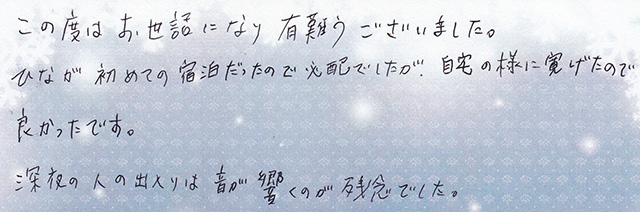 この度はお世話になり有難うございました。
ひなが初めての宿泊だったので心配でしたが、自宅の様に寛げたので
良かったです。
深夜の人の出入りは音が響くのが残念でした。